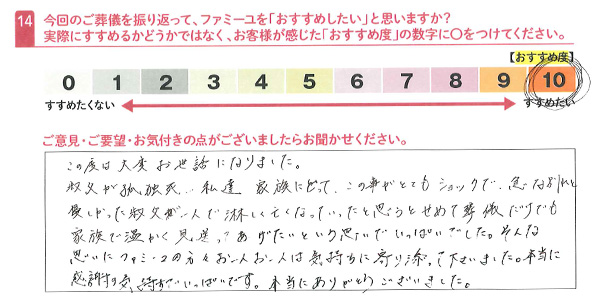 14 今回のご葬儀を振り返って、ファミーユを「おすすめしたい」と思いますか?
実際にすすめるかどうかではなく、お客様が感じた「おすすめ度」の数字に〇をつけてください。
【おすすめ度】
0 1 2 3 4 5 6 7 8 9 10
すすめたくない すすめたい
ご意見・ご要望・お気付きの点がございましたらお聞かせください。
この度は大変お世話になりました。
叔父が孤独死… 私達 家族にとって、この事がとてもショックで、急な別れと
優しかった叔父が一人で淋しく亡くなっていったと思うとせめて葬儀だけでも
家族で温かく見送ってあげたいという思いでいっぱいでした。そんな
思いにファミーユの方々お一人お一人は気持ちに寄り添って下さいました。本当に
感謝の気持ちでいっぱいです。本当にありがとうございました。